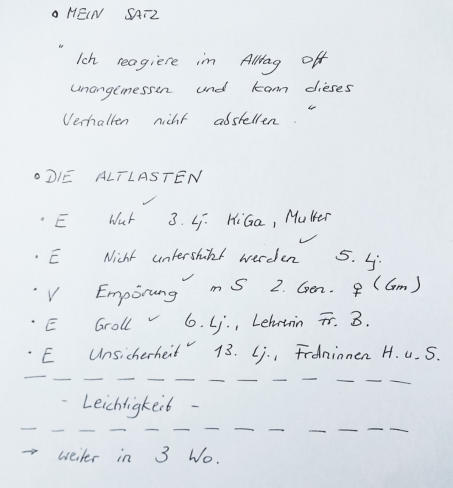 • MEIN SATZ
"Ich reagiere im Alltag oft
unangemessen und kann dieses
Verhalten nicht abstellen."
• DIE ALTLASTEN
• E Wut ✓ 3. Lj. KiGa, Mutter
• E Nicht unterstützt werden ✓ 5. Lj.
• V Empörung ✓ m S 2. Gen. ♀ (Gm)
• E Groll ✓ 6. Lj., Lehrerin Fr. B.
• E Unsicherheit ✓ 13. Lj., Frdninnen H. u. S.
- Leichtigkeit -
→ weiter in 3 Wo.